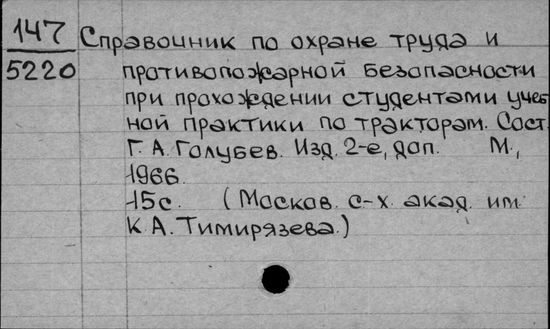 147 Справочник по охране труда и
5220 противопожарной безопасности
при прохождении студентами учеб
ной практики по тракторам. Сост.
Г. А. Голубев. Изд. 2-е, доп. М.,
1966.
15с. (Москов. с-х. акад. им.
К А. Тимирязева.)